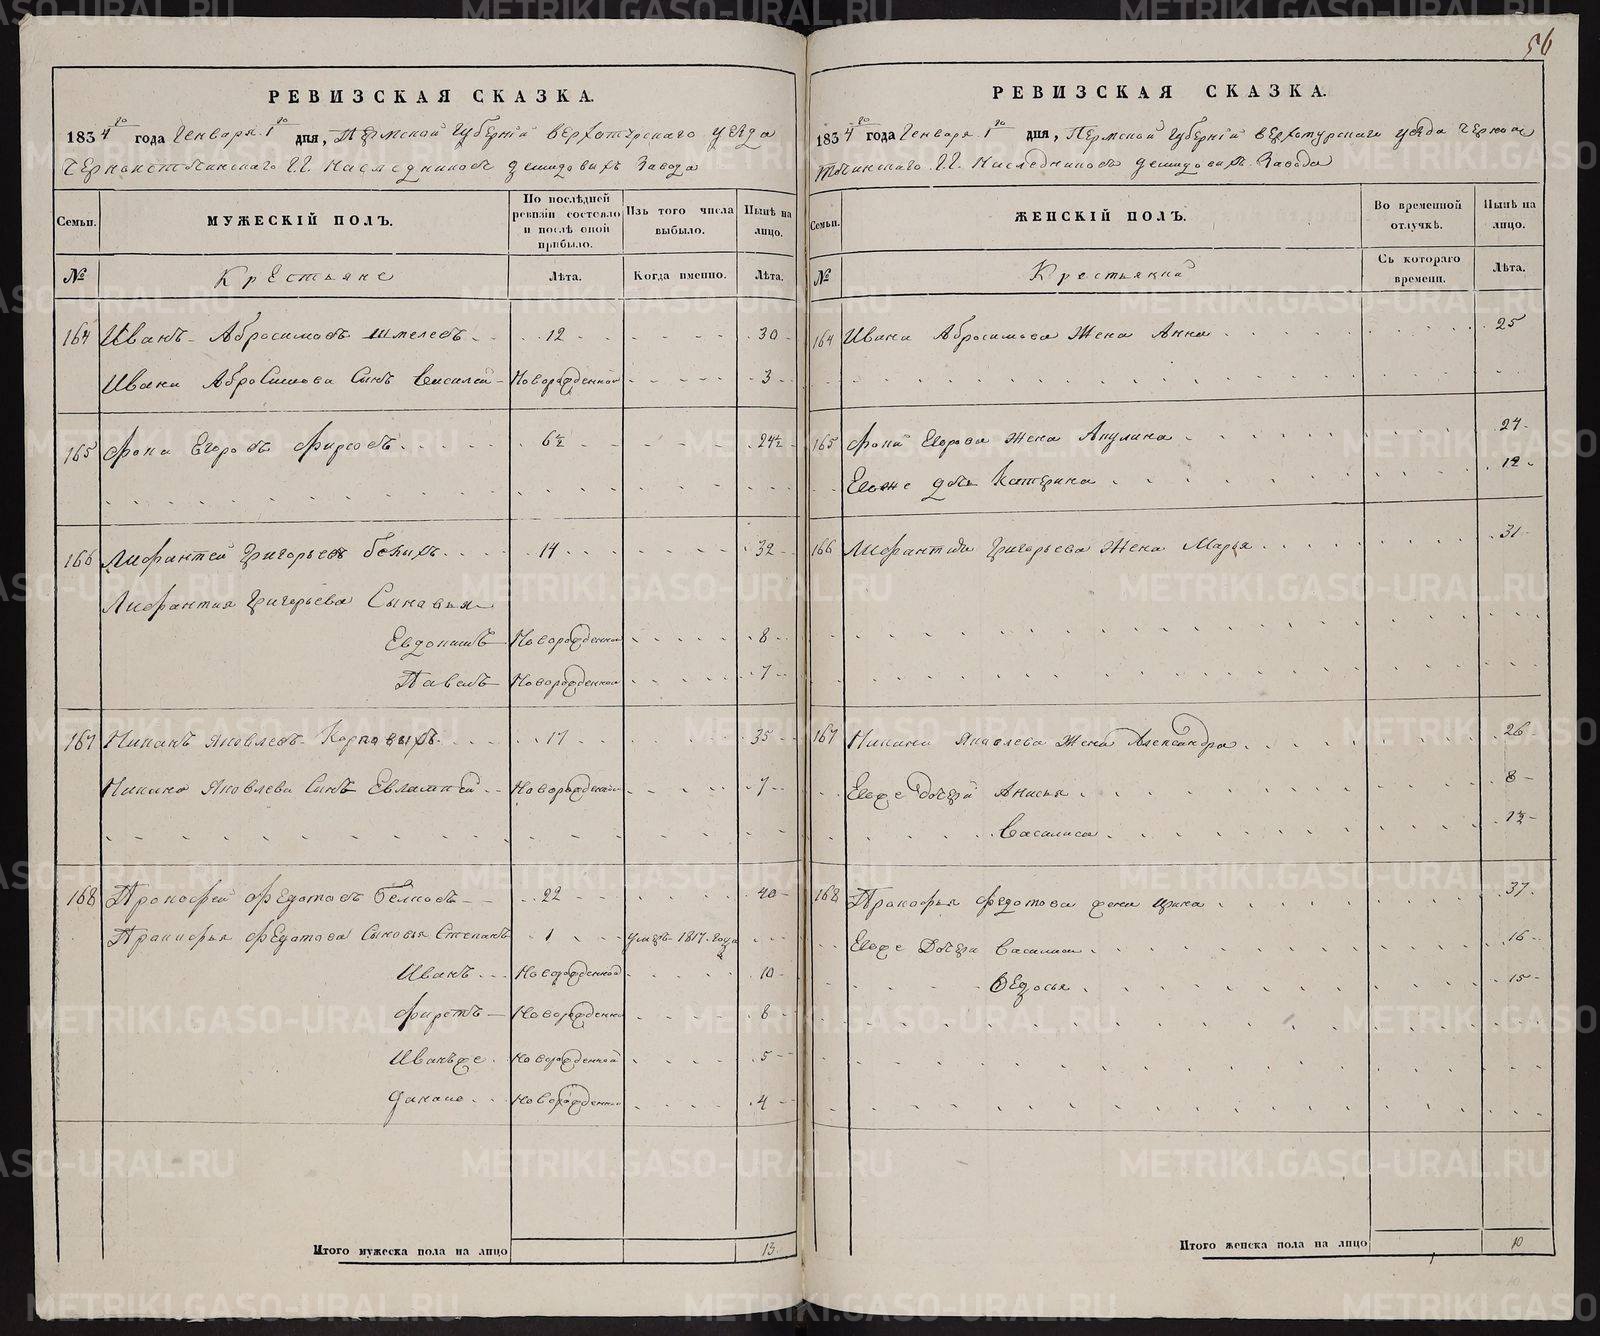 56
РЕВИЗСКАЯ СКАЗКА.
1834го года Генваря 1го дня, Пермской Губернии Верхотурскаго уезда
Черноисточинскаго Г.Г. Наследников Демидовых Завода
Семьи. МУЖЕСКІЙ ПОЛЪ. По послѣдней ревизіи состояло и послѣ оной прибыло. Изъ того числа выбыло. Нынѣ на лицо.
№ Крестьяне Лѣта. Когда именно. Лѣта.
164 Иванъ Абросимовъ Шмелевъ 12 30
Ивана Абросимова Сынъ Василей Новорожденной 3
165 Егоровъ Фирсовъ 6½ 24½
166 Григорьевъ 14 32
Григорьева Сыновья
Новорожденной 8
Павелъ Новорожденной 7
167 Яковлевъ Карповыхъ 17 35
Яковлева Сынъ Евлампей Новорожденной 7
168 Прокофей Федотовъ Белковъ 22 40
Прокофья Федотова Сыновья Степанъ 1 умеръ 1817 года
Иванъ Новорожденной 10
Фирстъ Новорожденной 8
Иванъже Новорожденной 5
Новорожденной 4
Итого мужеска пола на лицо 13
РЕВИЗСКАЯ СКАЗКА.
1834го года Генваря 1го дня, Пермской Губернии Верхотурскаго уезда Черноис
точинскаго Г.Г. Наследниковъ Демидовыхъ Завода
Семьи. ЖЕНСКІЙ ПОЛЪ. Во временной отлучкѣ. Нынѣ на лицо.
№ Крестьянки Съ котораго времени. Лѣта.
164 Ивана Абросимова Жена Анна 25
165 Егорова Жена Акулина 24
Егоже дочь Катерина
166 Григорьева Жена Марья 31
167 Яковлева Жена Александра 26
Егоже Дочери Анисья 8
Василиса 1½
168 Прокофья Федотова жена Ирина 37
Егоже Дочери Василиса 16
Федосья 15
Итого женска пола на лицо 10
METRIKI.GASO-URAL.RU